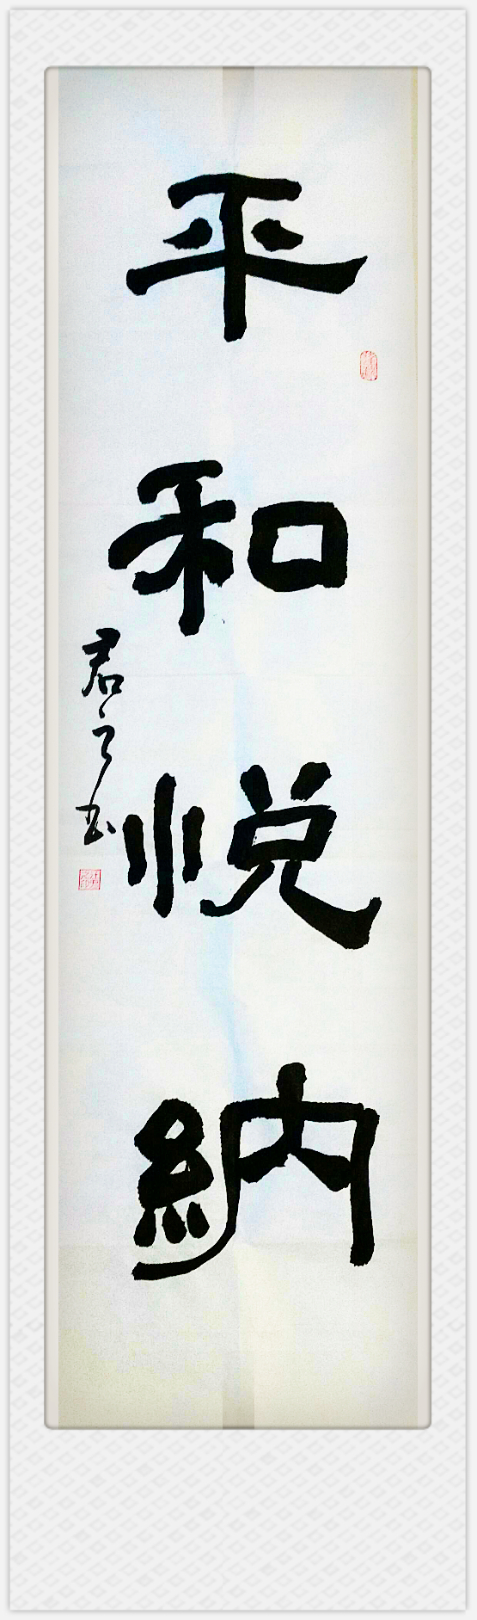 平和悦納
君之书